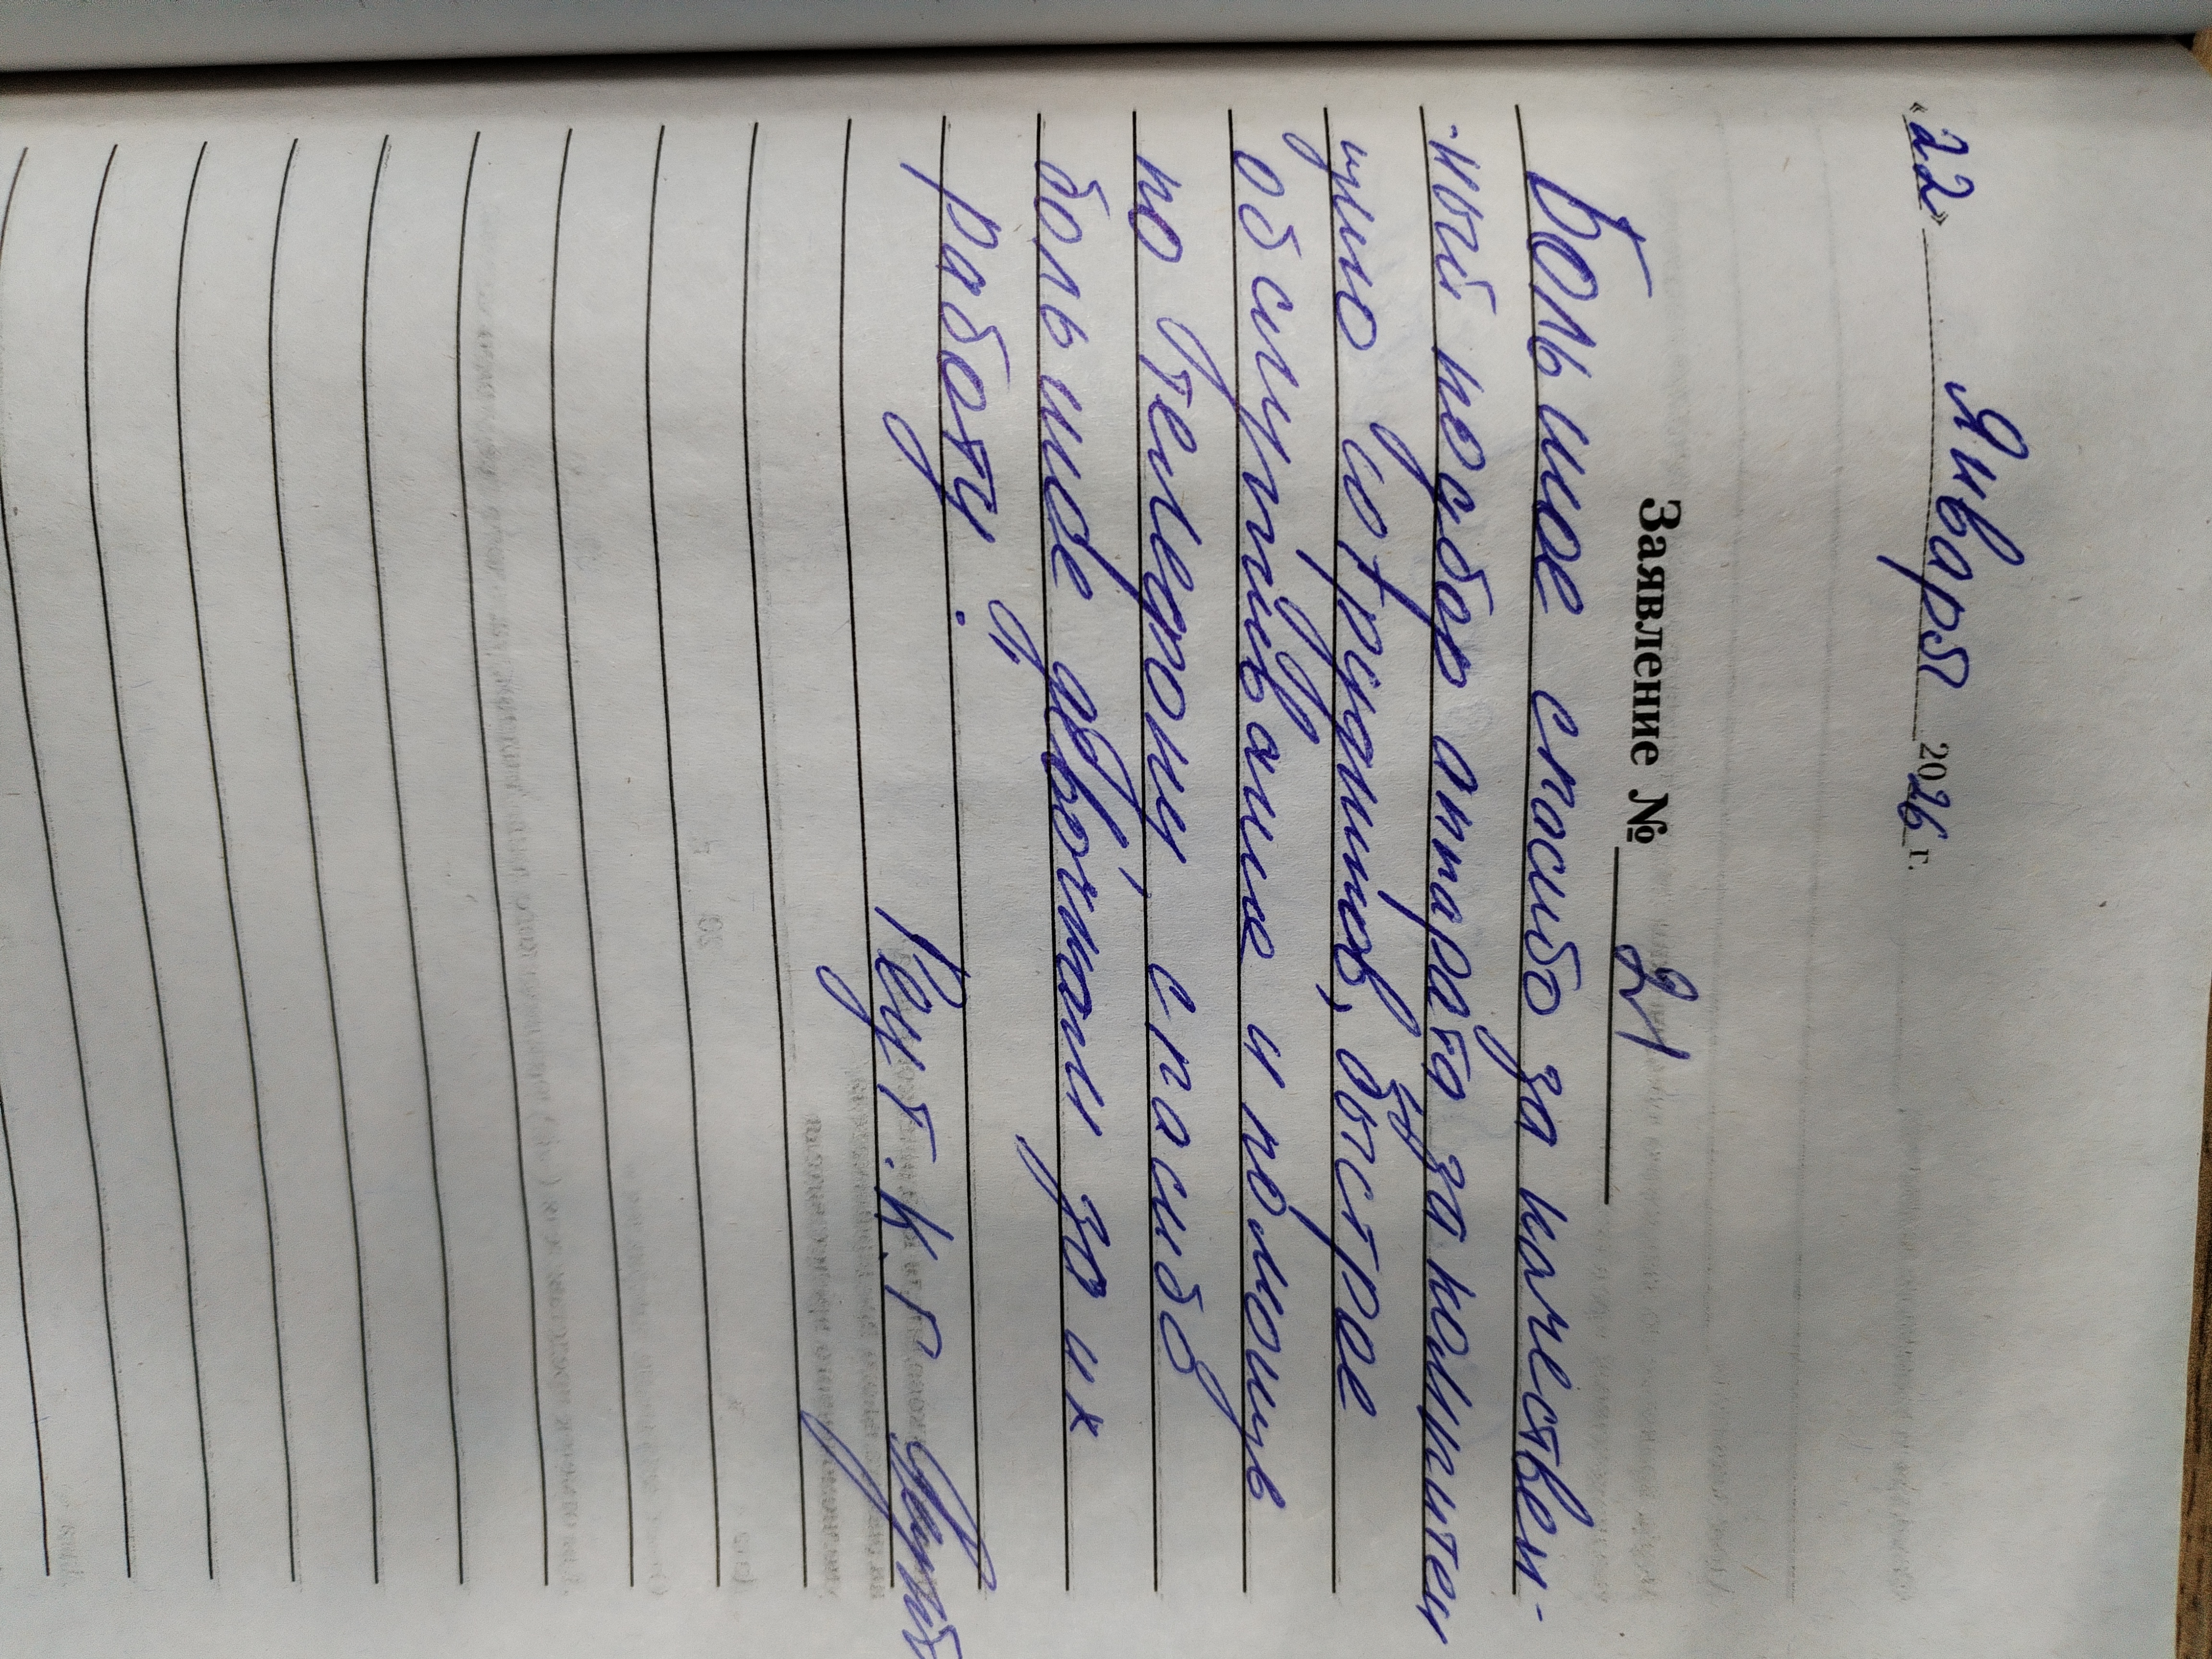 «22» Января 2026 г.
Заявление № 21
Большое спасибо за качествен-
-ный подбор аппарата за компитен
цию сотрудников, быстрое
обслуживание и помощь
по телефону, спасибо
большое девочкам за их
работу.
К.Г.